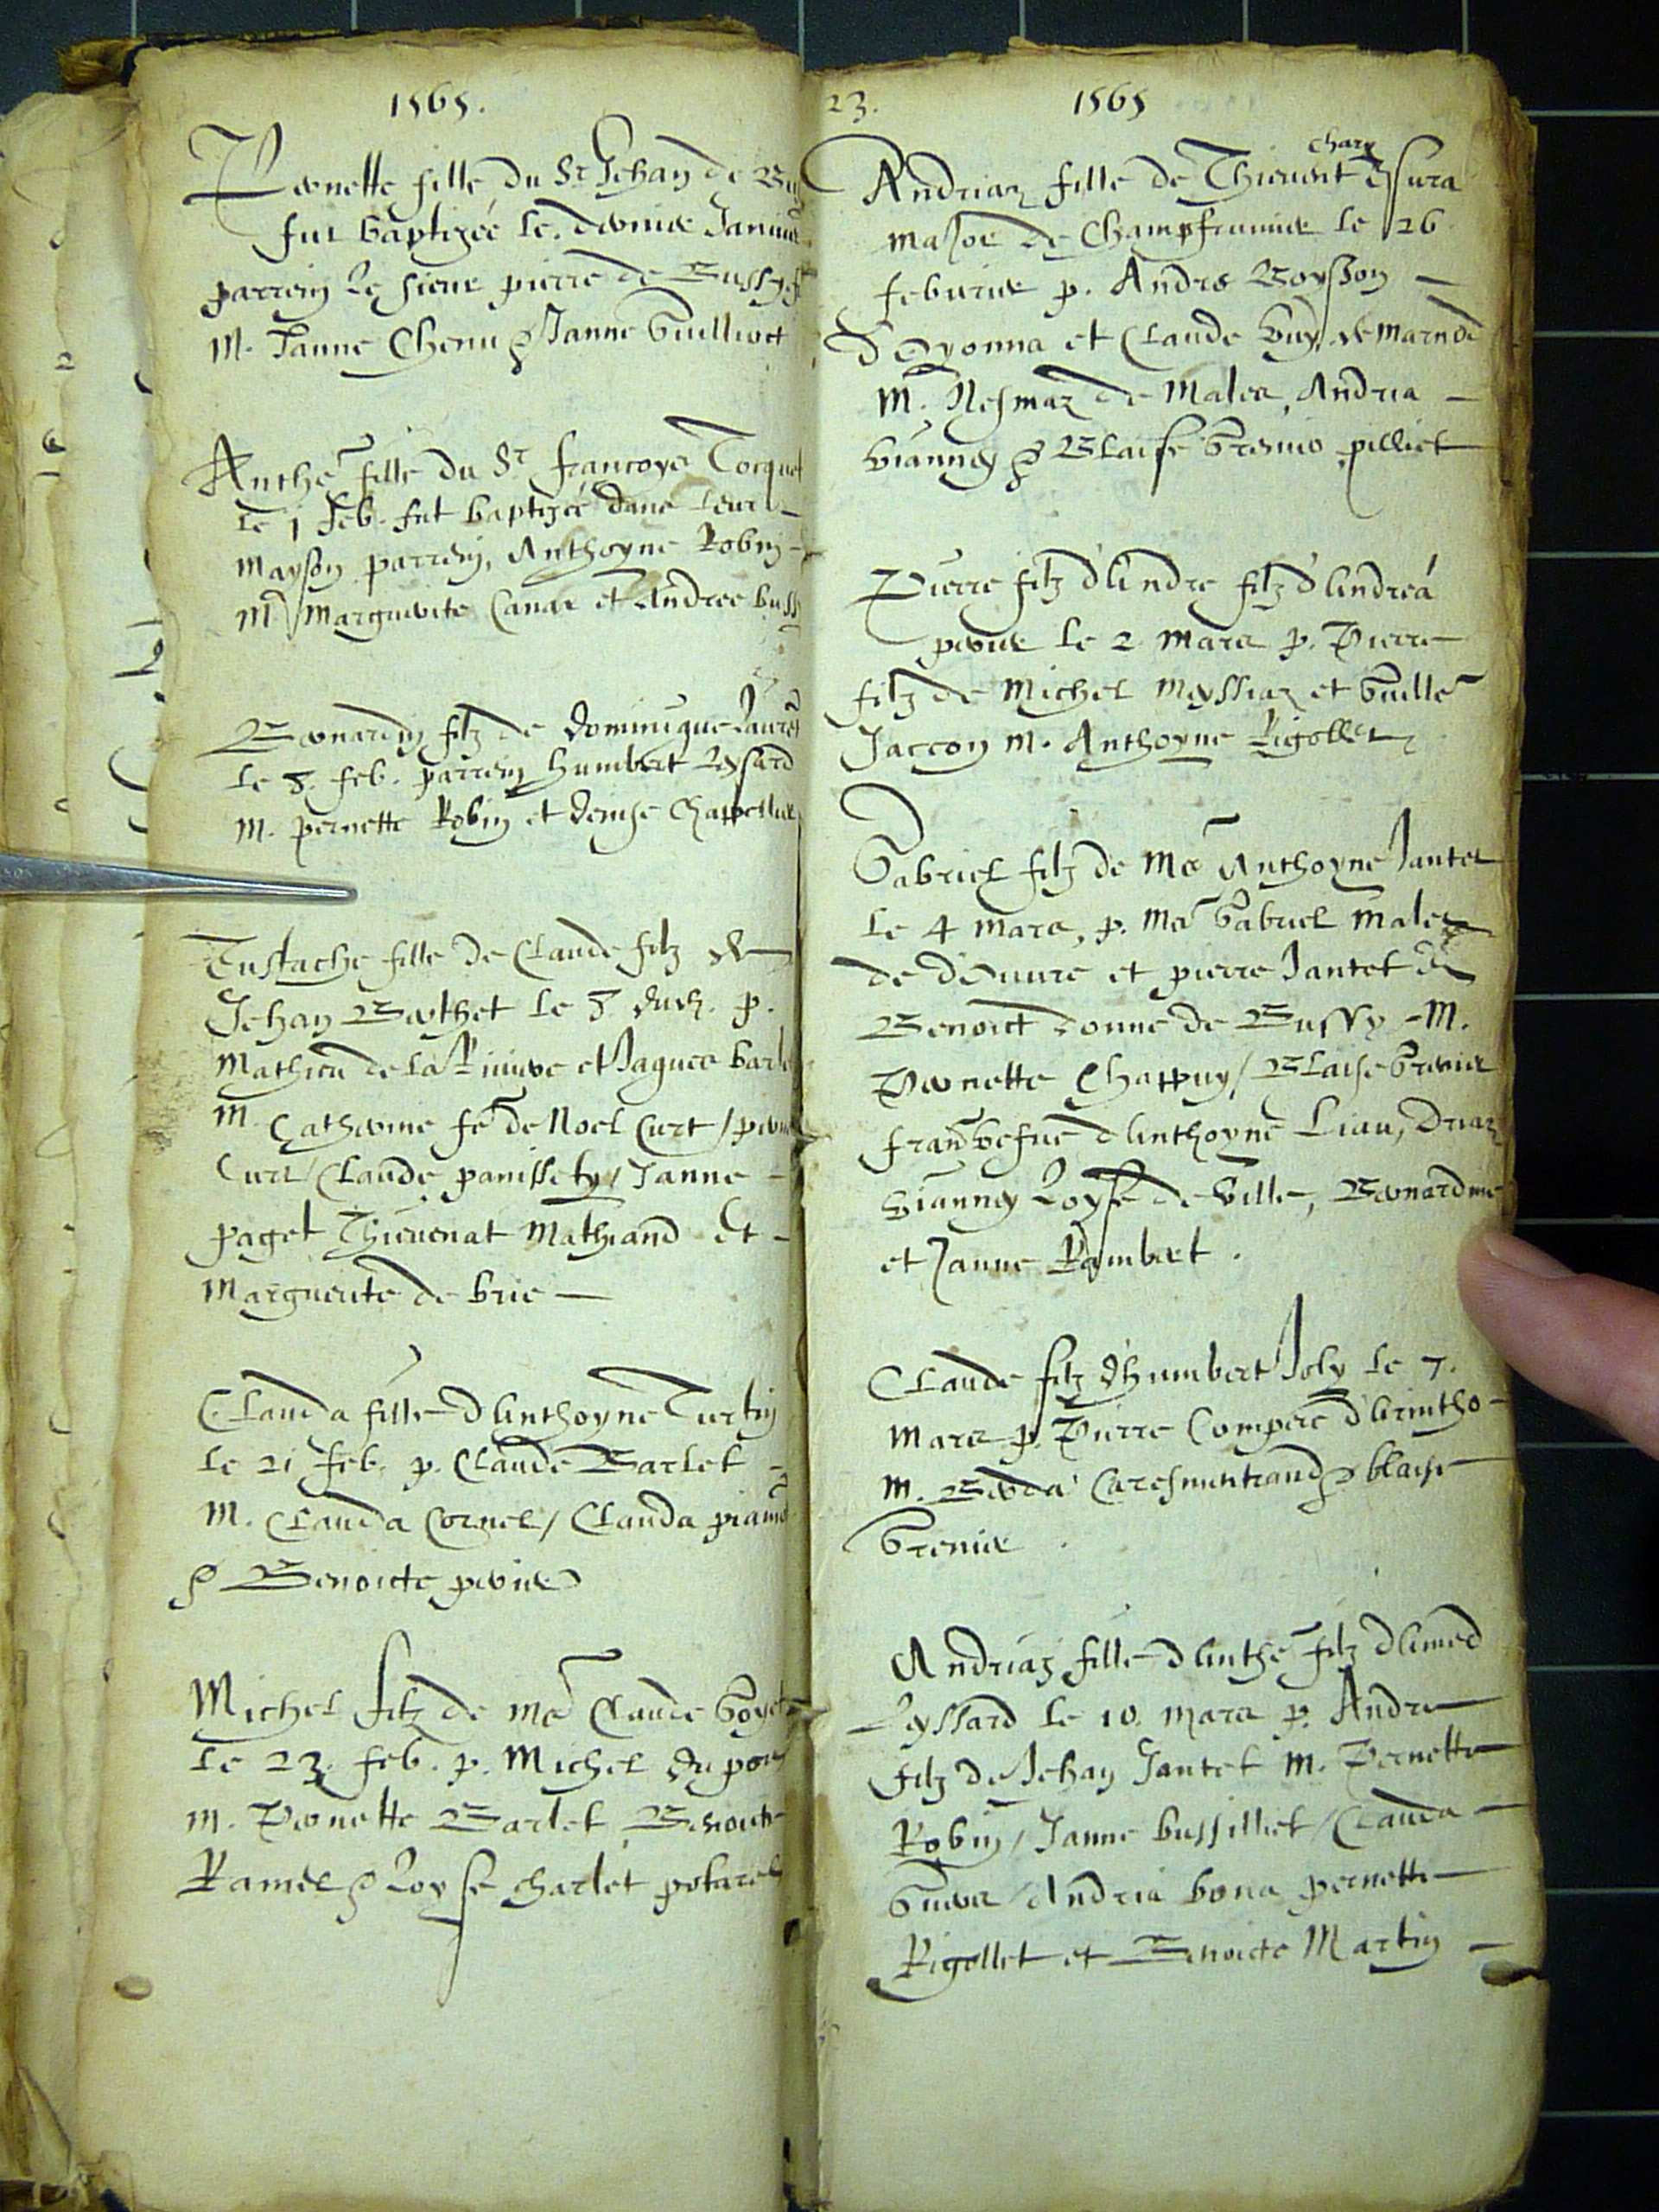 1565.
Pernette fille du Sr Jehan de Bu
fut baptizée le dernier Januier
parrein le sieur pierre de Bussy
M. Janne Chenu & Janne Guilliot
Anthe fille du Sr françoys Tocquet
le 1 feb. fut baptizée dans leur
mayson parrein, Anthoyne Robin
M Marguerite Canar et Andree buss
Bernardin filz de dominique Laure
le 8. feb. parrein humbert Reysard
M. pernette Robin et denise Chappellu
Eustache fille de Claude filz de
Jehan Berthet le 8 dud. p.
Mathieu de la Riuiere et Jaques barle
M. Catherine fe de Noel Curt / per
Curt / Claude panissety / Janne
paget Thieuenat Mathiand et
Marguerite de brie
Clauda fille d'Anthoyne Turtin
le 21 feb. p. Claude Barlet
M. Clauda Cornel / Clauda
& Benoicte perrier
Michel filz de Me Claude Goyet
le 23. feb. p. Michel du pon
m. Pernette Barlet Benoicte
Ramel & Loyse charlet
23. 1565
Andriaz fille de Thieuent
charx
de Champfrumier le 26
feburier p. Andre Boysson
d'Oyonna et Claude Guy de
M. Nesmaz de Males, Andria
Vianney & Blaise pilliet
Pierre filz d'Andre filz d'Andrea
perrier le 2 mars p. Pierre
filz de Michel Meyssiaz et Guille
Jaccon M. Anthoyne Rigollet
Gabriel filz de Me Anthoyne Jantet
le 4 mars, p. Me Gabriel Males
de d'Ouure et pierre Jantet &
Benoict donne de Bussy - M.
Pernette Chappuy / Blaise Grenier
d'Anthoyne Liau, Driaz
Vianney Loyse de Ville, Bernardine
et Janne Rambert.
Claude filz d'humbert Joly le 7.
Mars p. Pierre Compere d'Arintho
M. Berda & blaise
Grenier
Andriaz fille d'Anthe filz d'Amed
Reyssard le 10. mars p. Andre
filz de Jehan Jantet M. Pernette
Robin / Janne bussilliet / Clauda
Andria bona pernette
Rigollet et Benoicte Martin